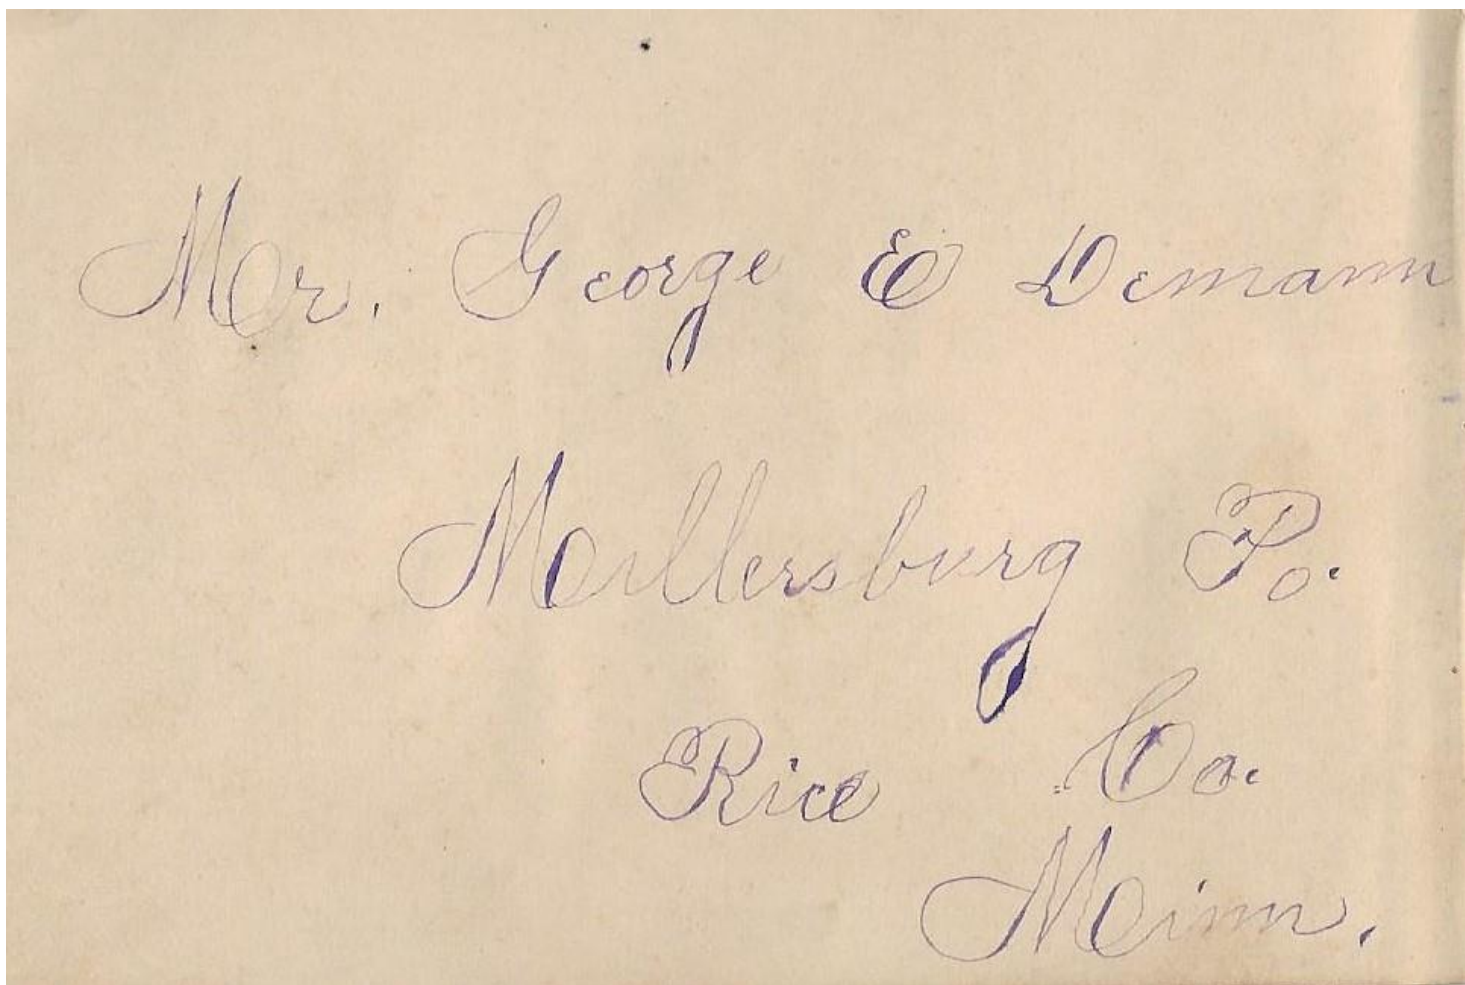 Mr. George E Demann
Millersburg Po.
Rice Co.
Minn.